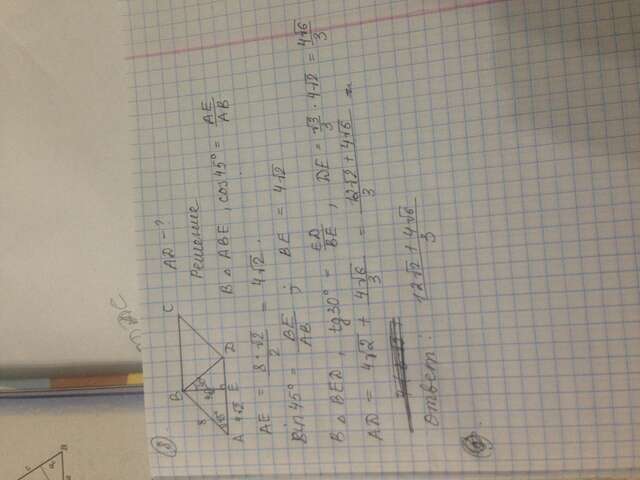 c
a
B
8
B
C
8
30°
45°
A
4√2
E
D
AD - ?
Решение
В △ ABE, cos45° = AE/AB
AE = 8·√2/2 = 4√2.
Sin45° = BE/AB ; BE = 4√2
В △ BED, tg30° = ED/BE, DE = √3/3 · 4√2 = 4√6/3
AD = 4√2 + 4√6/3 = 12√2 + 4√6/3 =
Ответ: 12√2 + 4√6/3